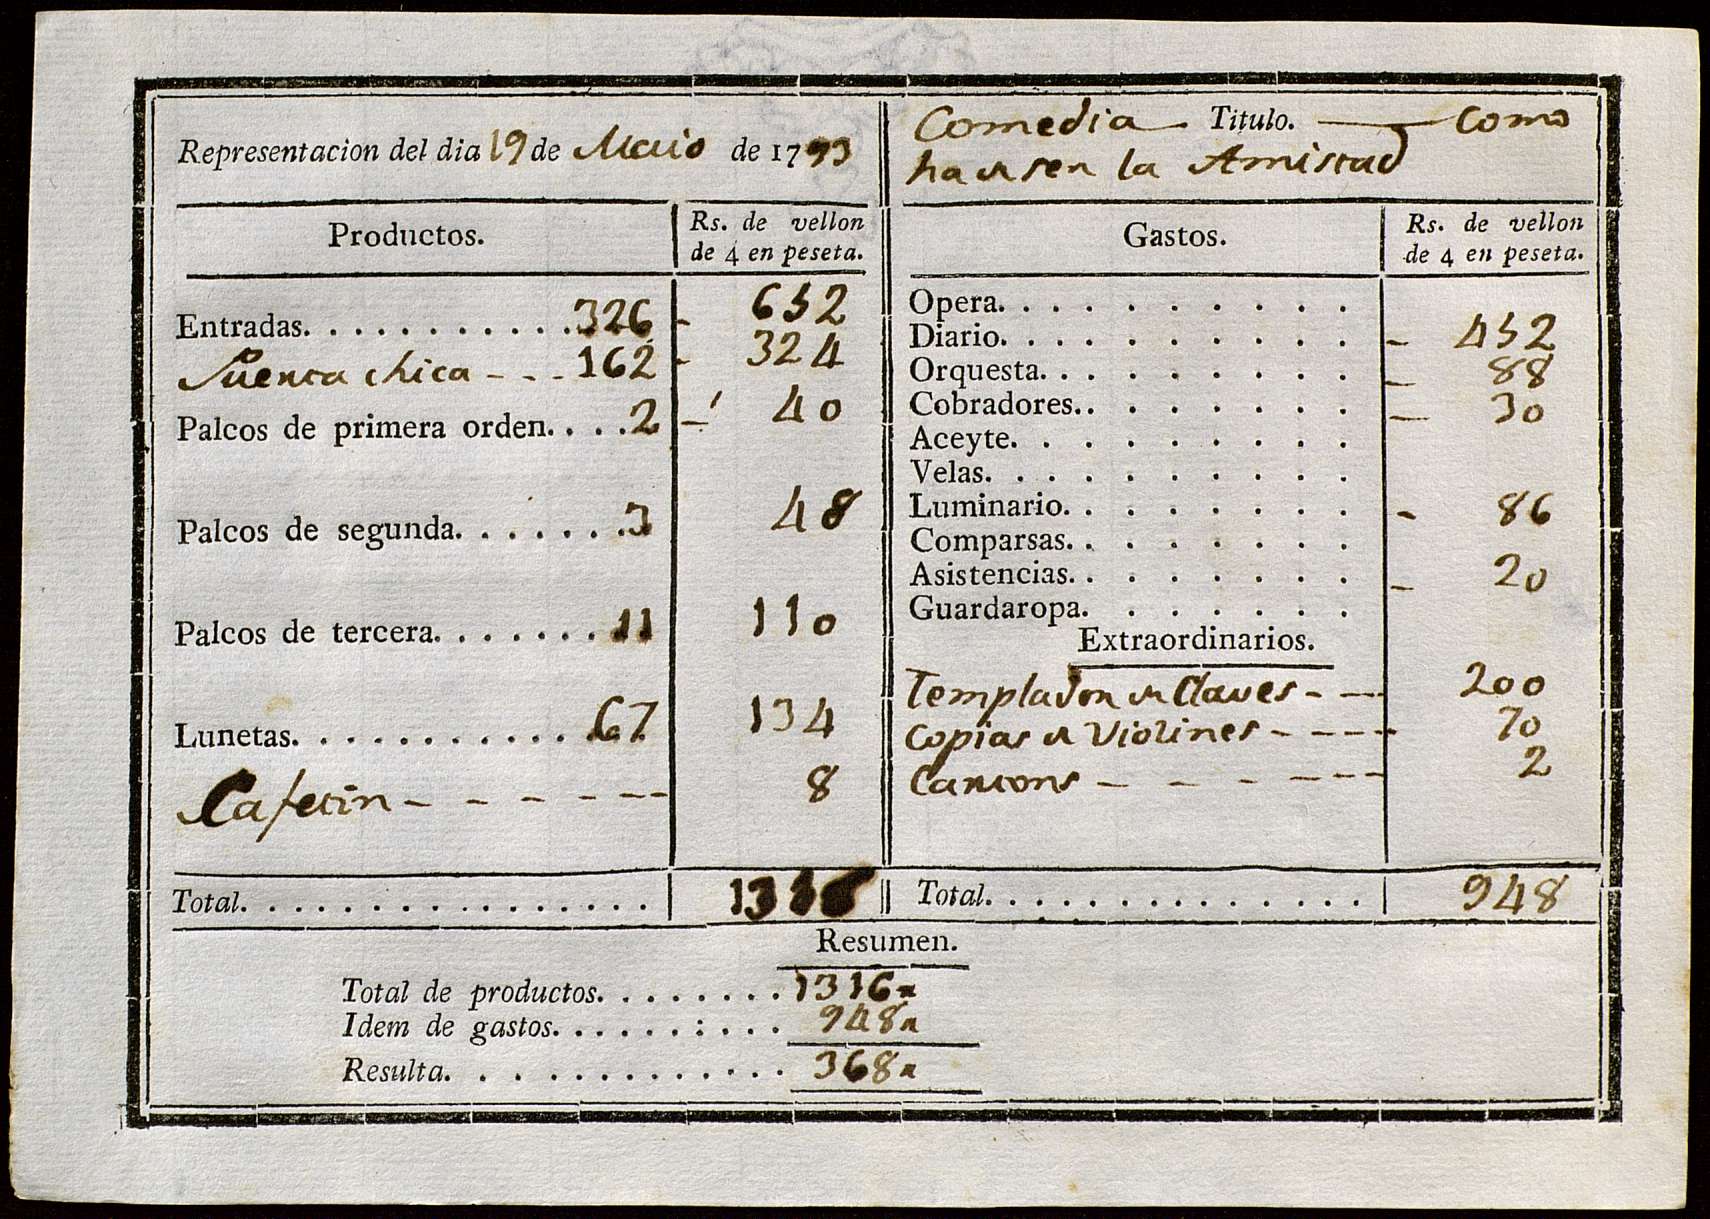 Representacion del dia 19 de Maio de 1793
Comedia Titulo. Como
ha de ser la Amistad
Productos. Rs. de vellon
de 4 en peseta.
Entradas. . . . . . . . . . . 326 - 652
Puerta chica - - - 162 - 324
Palcos de primera orden. . . . 2 - 40
Palcos de segunda. . . . . . . 3 48
Palcos de tercera. . . . . . . 11 110
Lunetas. . . . . . . . . . . . 67 134
Cafetin - - - - - - - 8
Total. . . . . . . . . . . . . . . . 1316
Gastos. Rs. de vellon
de 4 en peseta.
Opera. . . . . . . . . .
Diario. . . . . . . . . . - 452
Orquesta. . . . . . . . . - 88
Cobradores. . . . . . . . - 30
Aceyte. . . . . . . . .
Velas. . . . . . . . . .
Luminario. . . . . . . . - 86
Comparsas. . . . . . . .
Asistencias. . . . . . . . - 20
Guardaropa. . . . . . .
Extraordinarios.
Templador de Claves - - - 200
Copias de Violines - - - - - 70
Carteons - - - - - - - 2
Total. . . . . . . . . . . . . . . 948
Resumen.
Total de productos. . . . . . . . 1316
Idem de gastos. . . . . . . . . . 948
Resulta. . . . . . . . . . . . . 368